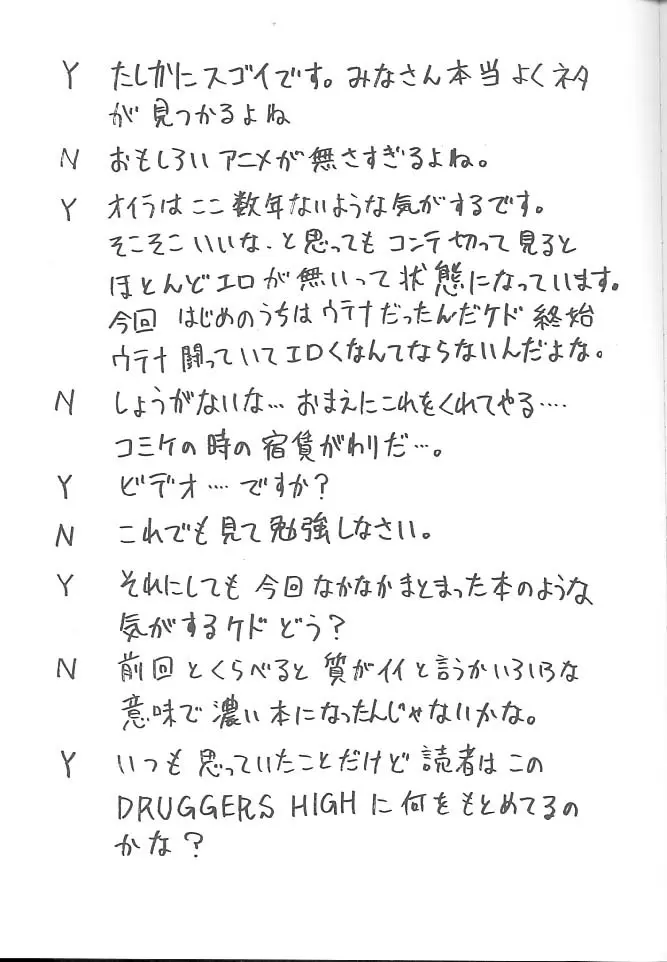 Y たしかにスゴイです。みなさん本当よくネタ
が見つかるよね
N おもしろいアニメが無さすぎるよね。
Y オイラはここ数年ないような気がするです。
そこそこいいな、と思ってもコンテ切って見ると
ほとんどエロが無いって状態になっています。
今回 はじめのうちはウテナだったんだケド終始
ウテナ闘っていてエロくなんてならないんだよな。
N しょうがないな…おまえにこれをくれてやる‥‥
コミケの時の宿賃がわりだ…。
Y ビデオ‥‥ですか?
N これでも見て勉強しなさい。
Y それにしても今回なかなかまとまった本のような
気がするケドどう?
N 前回とくらべると質がイイと言うかいろいろな
意味で濃い本になったんじゃないかな。
Y いつも思っていたことだけど読者はこの
DRUGGERS HIGHに何をもとめてるの
かな?